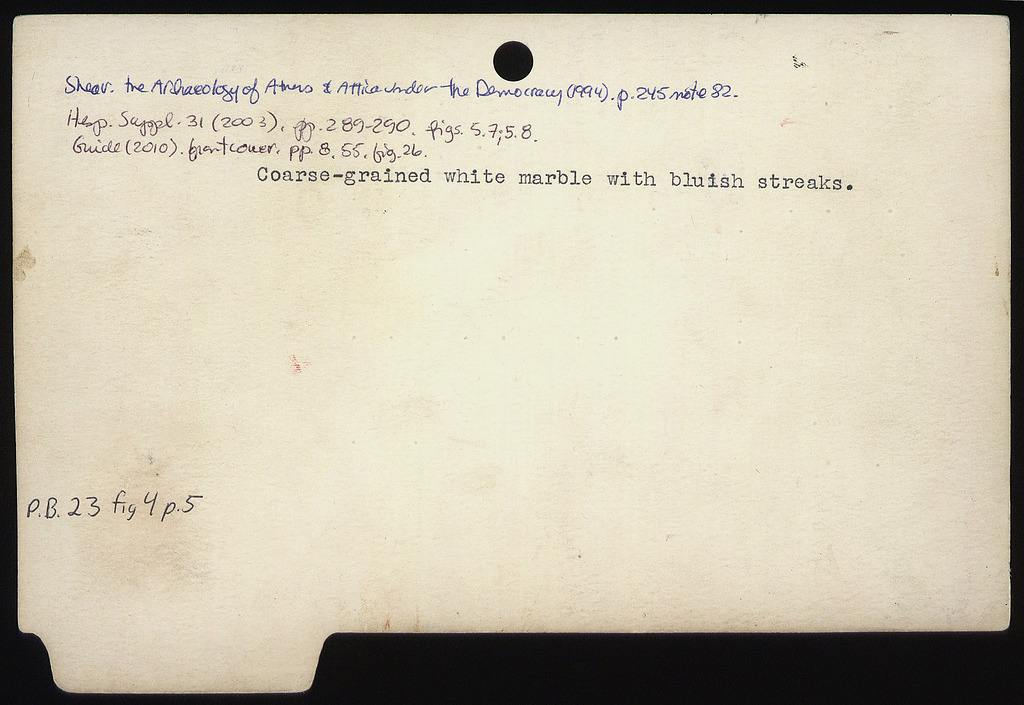 Shear. The Archaeology of Athens & Attica under the Democracy (1994). p. 245 note 82.
Hesp. Suppl. 31 (2003), pp. 289-290. figs. 5.7; 5.8.
Guide (2010). front cover. pp. 8, 55, fig. 26.
Coarse-grained white marble with bluish streaks.
P.B. 23 fig 4 p.5